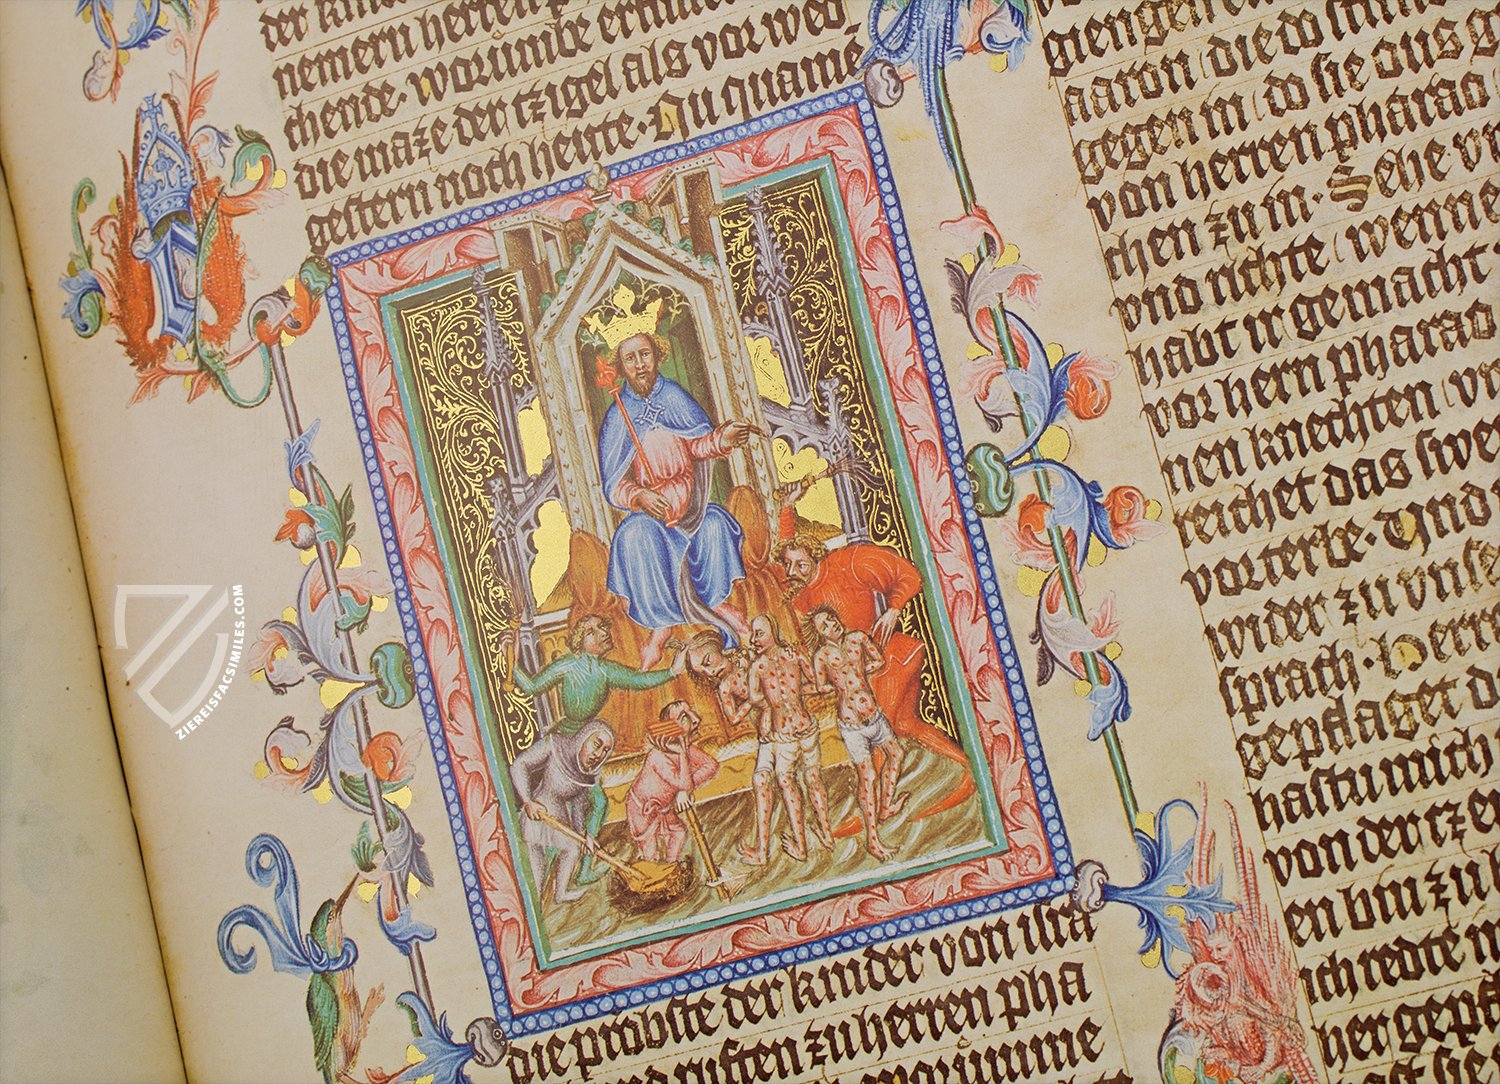 der kinder
nemern herren
chende. worumbe erfullet
die maze der czigel als vor wed
gestern noch heute. Nu quamē
die probste der kinder von isra
und rufften zu herren pha
worumme
giengen
aaron die do
gegen in do sie ous g
von herren pharao
chen zu in. Sehe. vn
vnd richte wenne
habt ir gemacht
vor hern pharao
nen knechten vn
reichet das swe
vorterbe. Vnd
wider zu vnse
sprach. Herre
gepflaget d
hastu mich
von der cze
en bin zu
ich redte
her gepf
ZIEREISFACSIMILES.COM